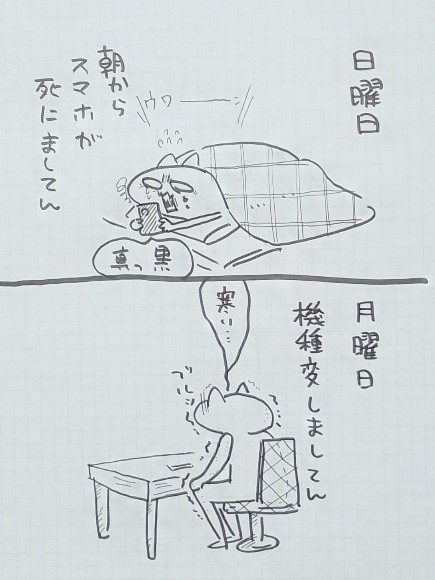 日曜日
朝から
スマホが
死にましてん
ウワーーー
真っ黒
月曜日
機種変しましてん
寒い…
ブルッ